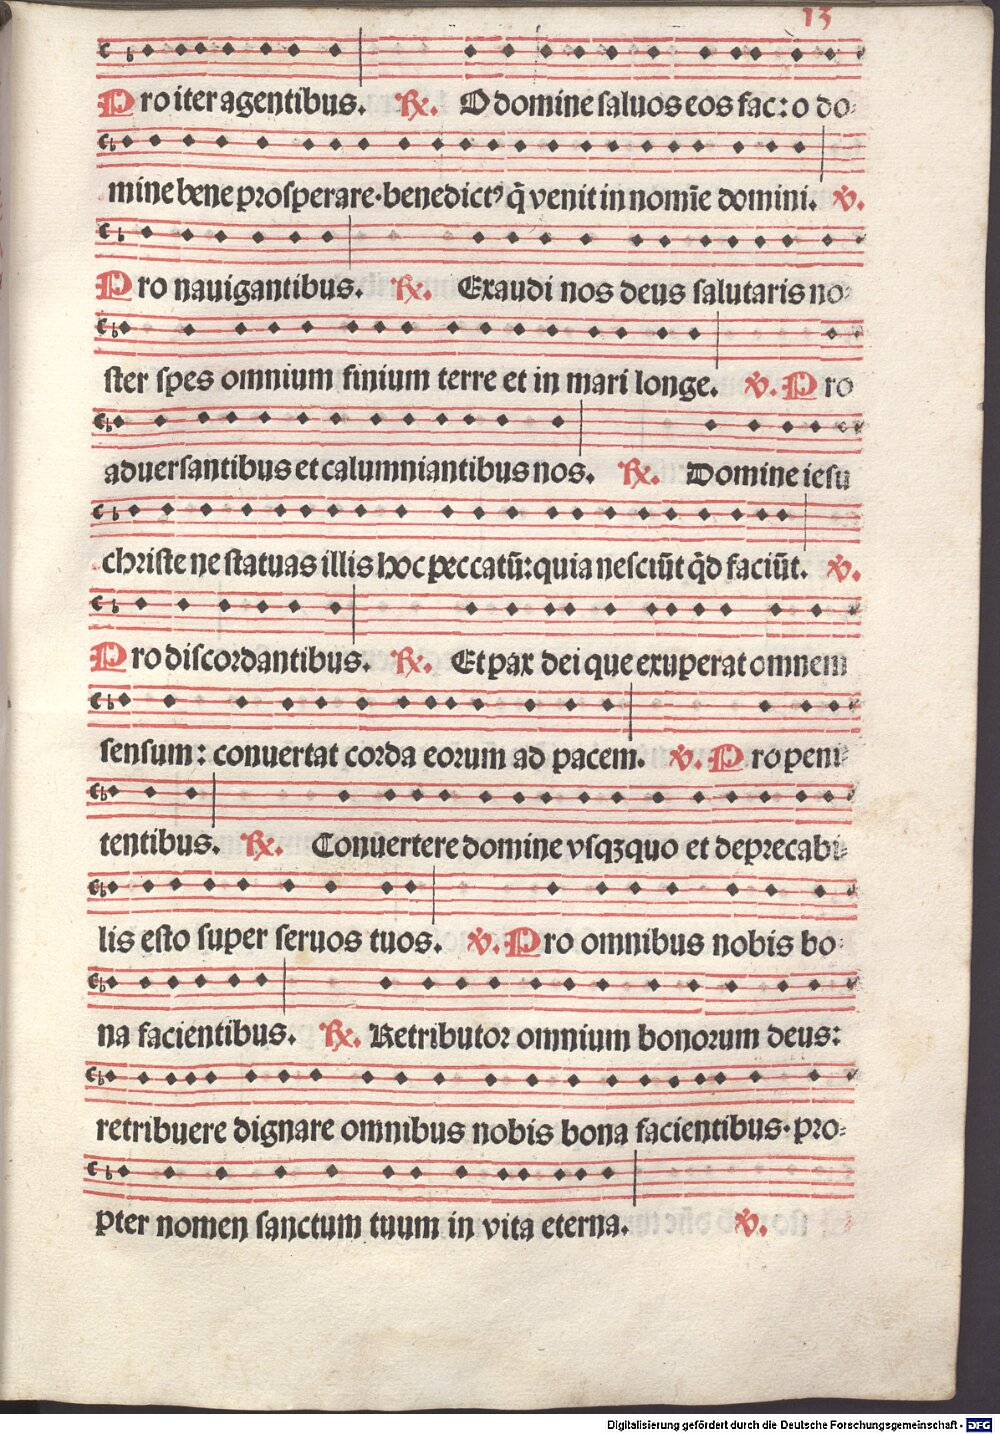 13
Pro iter agentibus. ℟. O domine saluos eos fac: o do-
mine bene prosperare·benedictꝰ q̄ venit in nomīe domini. ℣.
Pro nauigantibus. ℟. Exaudi nos deus salutaris no-
ster spes omnium finium terre et in mari longe. ℣. Pro
aduersantibus et calumniantibus nos. ℟. Domine iesu
christe ne statuas illis hoc peccatū: quia nesciūt q̄d faciūt. ℣.
Pro discordantibus. ℟. Et pax dei que exuperat omnem
sensum: conuertat corda eorum ad pacem. ℣. Pro peni-
tentibus. ℟. Conuertere domine vsqꝫquo et deprecabi-
lis esto super seruos tuos. ℣. Pro omnibus nobis bo-
na facientibus. ℟. Retributor omnium bonorum deus:
retribuere dignare omnibus nobis bona facientibus·pro-
pter nomen sanctum tuum in vita eterna. ℣.
Digitalisierung gefördert durch die Deutsche Forschungsgemeinschaft - DFG